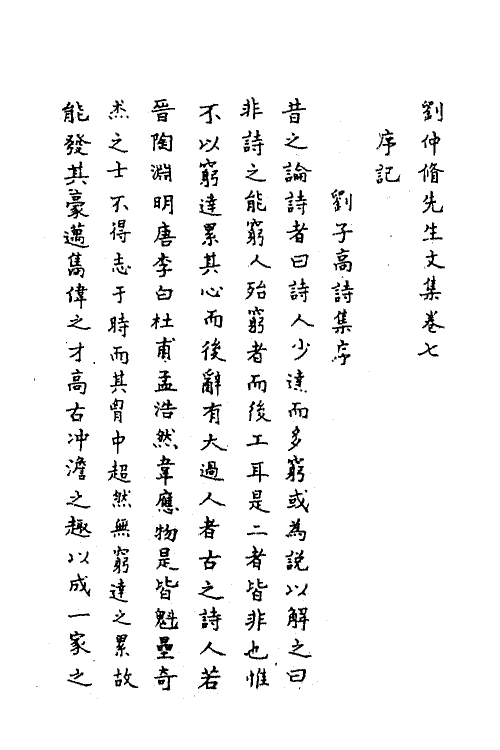 劉仲脩先生文集卷七
序記
劉子高詩集序
昔之論詩者曰詩人少達而多窮或為說以解之曰
非詩之能窮人殆窮者而後工耳是二者皆非也惟
不以窮達累其心而後辭有大過人者古之詩人若
晉陶淵明唐李白杜甫孟浩然韋應物是皆魁壘奇
杰之士不得志于時而其胷中超然無窮達之累故
能發其豪邁雋偉之才高古冲澹之趣以成一家之